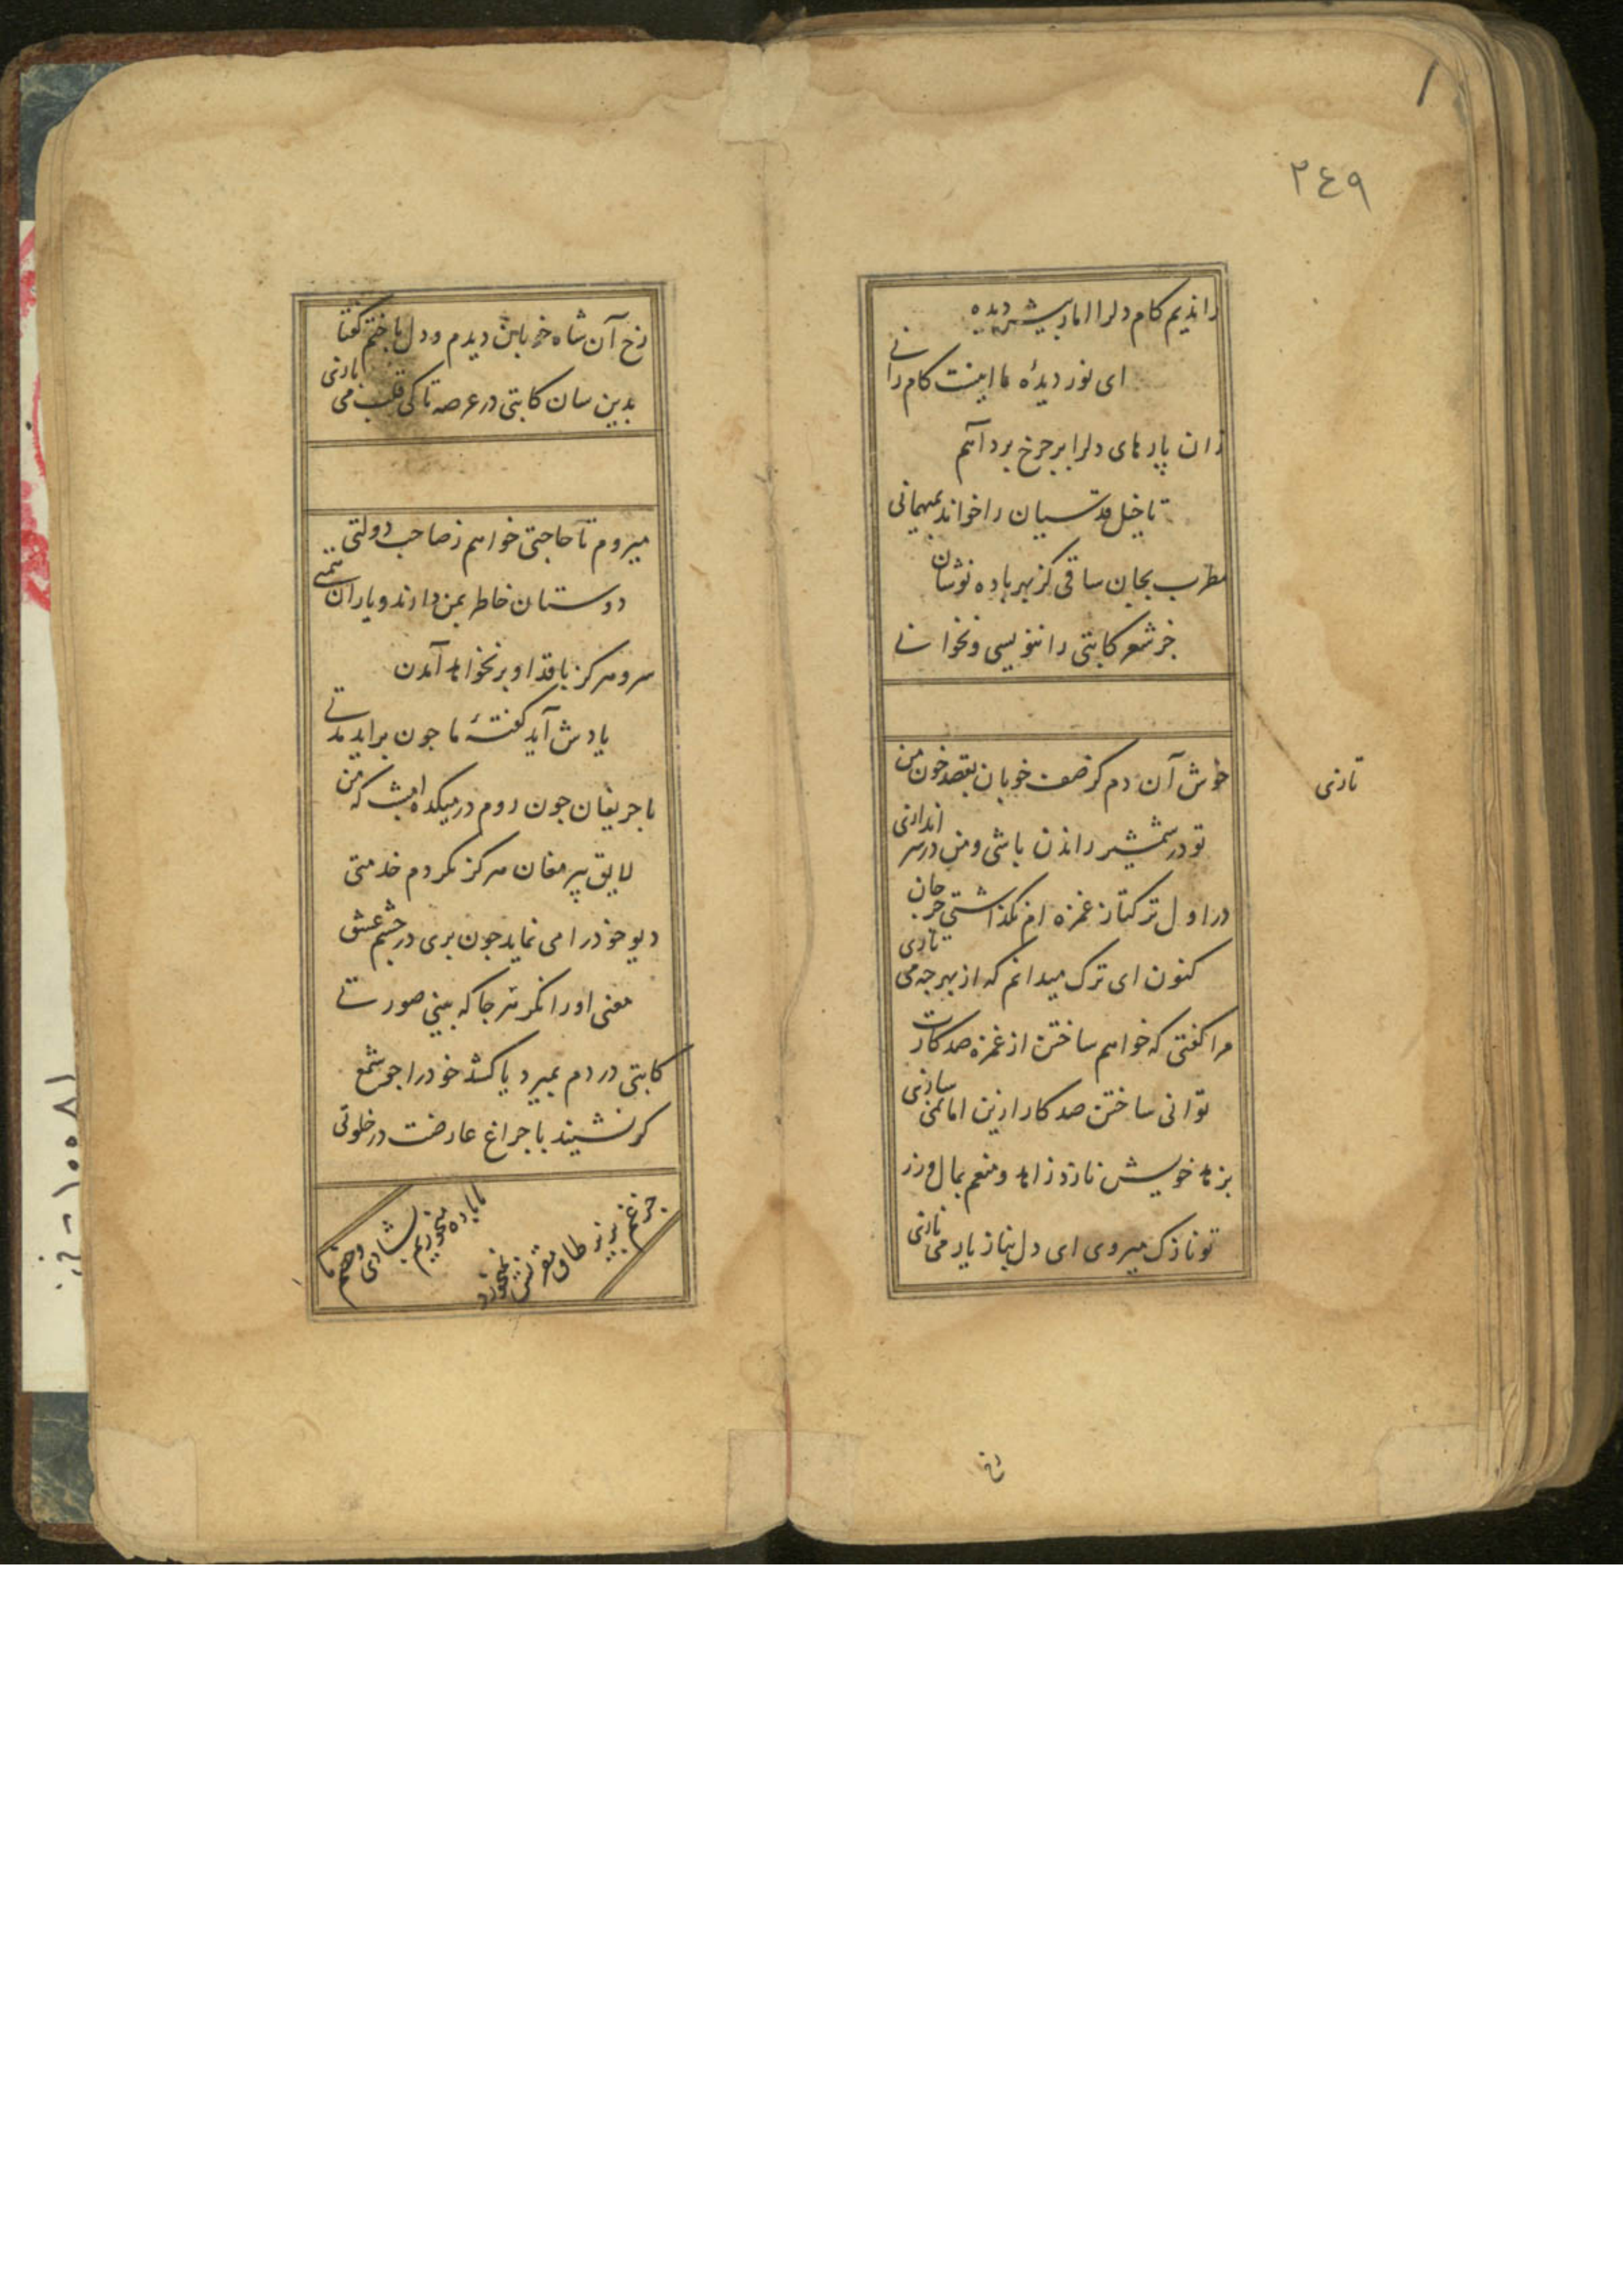 ٢٤٩
راندیم کام دلرا اما ز پیش دیده
ای نور دیدهٔ ما اینست کام رانی
زان پارهای دلرا بر چرخ برد آهم
تا خیل قدسیان را خواند بمیهمانی
مطرب بجان ساقی کز بهر باده نوشان
جز شعر کاتبی را ننویسی و نخوانی
خوش آن دم کز صف خوبان بقصد خون من
تازی
تو در شمشیر راندن باشی و من در سر اندازی
در اول ترکتاز غمزه ام نگذاشتی جز جان
کنون ای ترک میدانم که از بهر چه می تازی
مرا گفتی که خواهم ساختن از غمزه صد کارت
توانی ساختن صد کار ازین اما نمی سازی
بزهد خویش نازد زاهد و منعم بمال و زر
تو نازک میروی ای دل بناز یار می نازی
رخ
رخ آن شاه خوبان دیدم و دل باختم گفتا
بدین سان کاتبی در عرصه تا کی قلب می بازی
میروم تا حاجتی خواهم ز صاحب دولتی
دوستان خاطر بمن دارند و یاران همتی
سرو هرکز با قد او بر نخواهد آمدن
یادش آید گفتهٔ ما چون برآید مدتی
با حریفان چون روم در میکده امشب که من
لایق پیر مغان هرکز نکردم خدمتی
دیو خود را می نماید چون پری در چشم عشق
معنی او را نگر هر جا که بینی صورتی
کاتبی در دم بمیرد یا کشد خود را چو شمع
گر نشیند با چراغ عارضت در خلوتی
چرخ
ما باده میخوریم بشادی و خصم ما
١٠٠٨١ - ف